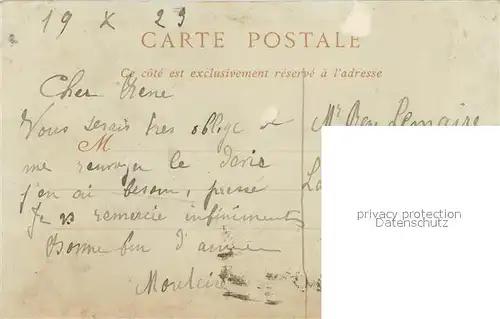 19 X 23
CARTE POSTALE
Ce côté est exclusivement réservé à l'adresse
Cher René
Vous serais très obligé de
M
me renvoyer le
j'en ai besoin, pressé
Je vs remercie infiniments
Bonne fin d'année
Mr René Lemaire
privacy protection
Datenschutz